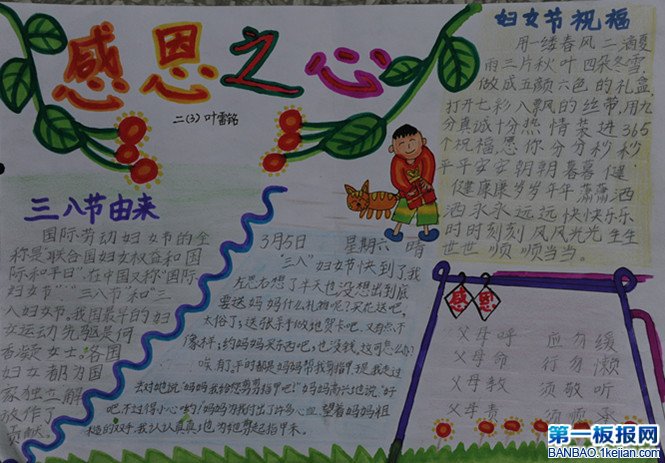 感恩之心
二(3) 叶雷铭
三八节由来
国际劳动妇女节的全
称是"联合国妇女权益和国
际和平日"。在中国又称"国际
妇女节""三八节"和"三
八妇女节。我国最早的妇
女运动先驱是何
香凝女士。各国
妇女都为国
家独立解
放作了
贡献。
3月5日 星期六 晴
"三八"妇女节快到了我
左思右想了半天也没想出到底
要送妈妈什么礼物呢?买花送吧,
太俗了;送张亲手做地贺卡吧,又有点不
像样;约妈妈买东西吧,也没钱。这可怎么办?
唉,有了,平时都是妈妈帮我剪指甲,现我走过
去对她说:"妈妈我给您剪剪指甲吧!"妈妈高兴地说:"好
吧,不过得小心哟!妈妈为我付出了许多心血,望着妈妈粗
糙的双手,我认认真真地为她剪起指甲来。
妇女节祝福
用一缕春风二滴夏
雨三片秋叶四朵冬雪,
做成五颜六色的礼盒,
打开七彩八飘风的丝带,用九
分真诚十分热情装进365
个祝福,愿你分分秒秒
平平安安朝朝暮暮健
健康康岁岁年年潇潇洒
洒永永远远快快乐乐
时时刻刻风风光光生生
世世顺顺当当。
感恩
父母呼 应勿缓
父母命 行勿懒
父母教 须敬听
父母责 须顺承
第一板报网
BANBAO.1kejian.com